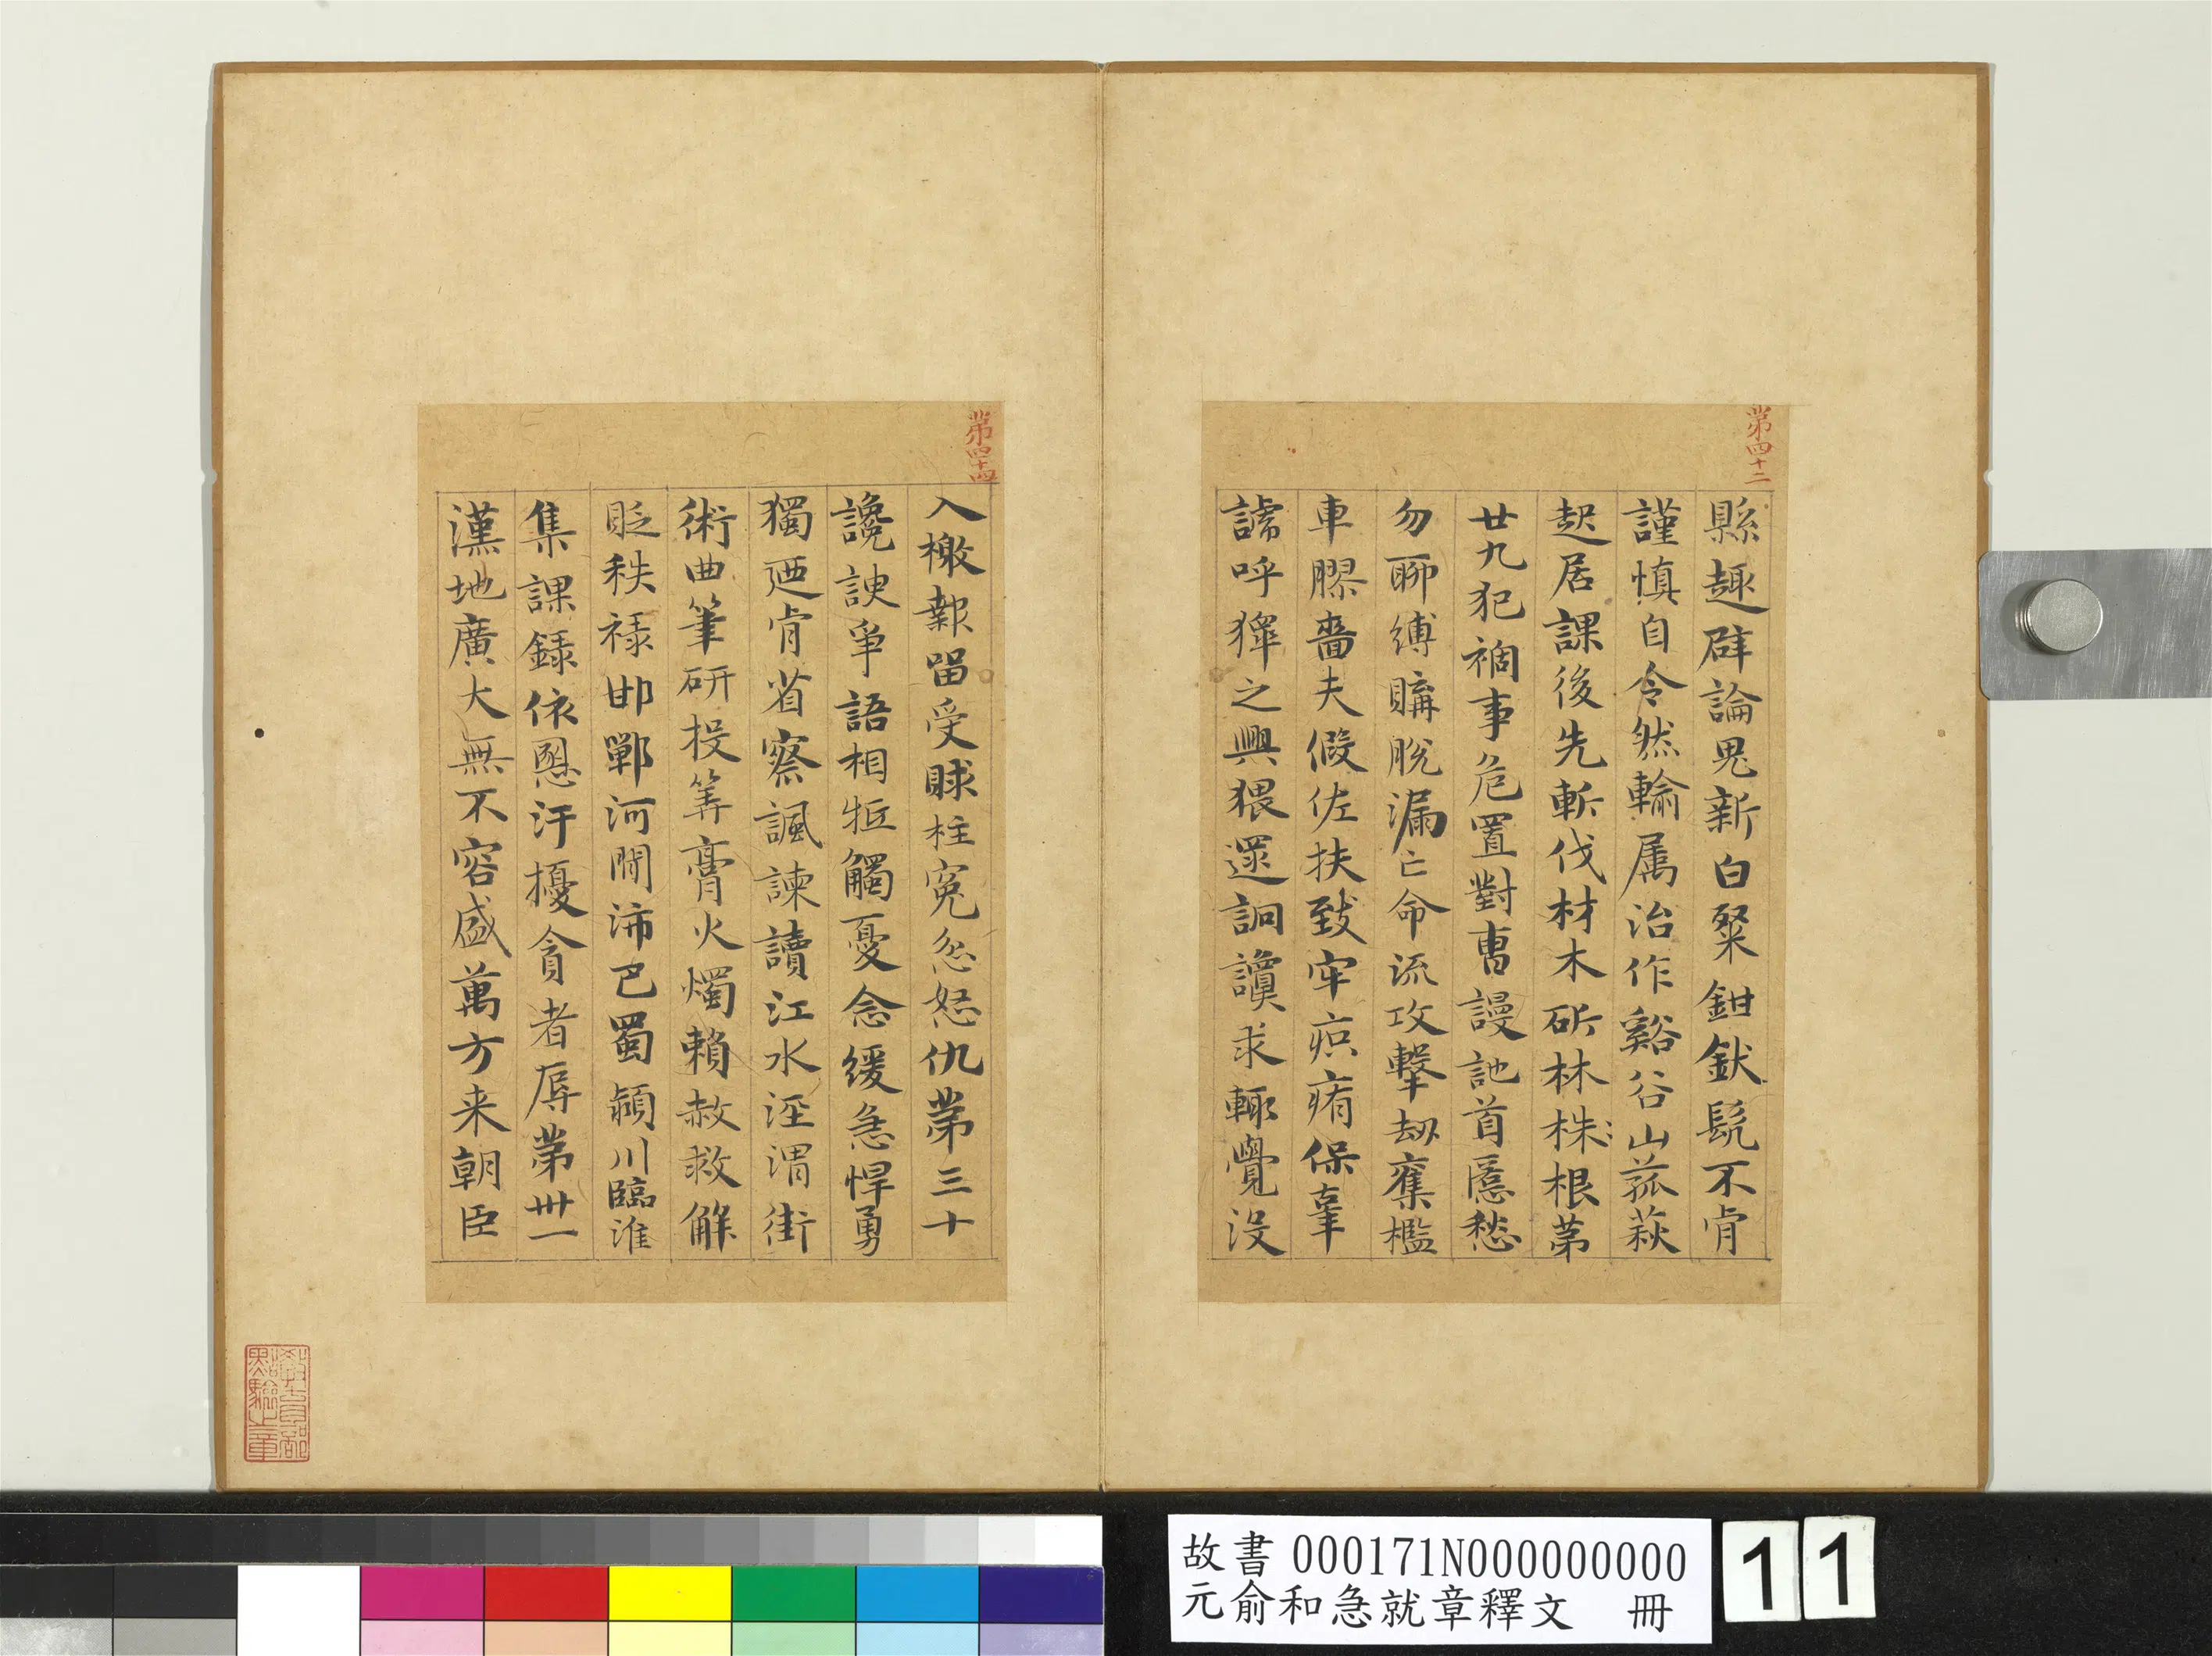 第四十二
縣趣辟論鬼新白粲鉗釱髡不肯
謹慎自令然輸属治作谿谷山菰萩
起居課後先斬伐材木斫林株根第
廿九犯禍事危置對曹謾訑首匿愁
勿聊縛購脫漏亡命流攻擊劫奪檻
車膠嗇夫假佐扶致牢疻痏保辜
謼呼獋之興猥逮詗讂求輒覺没
第四十四
入檄報留受賕枉寃忿怒仇第三十
讒諛爭語相牴觸憂念緩急悍勇
獨迺肯省察諷諫讀江水涇渭街
術曲筆研投筭膏火燭賴赦救解
貶秩禄邯鄲河間沛巴蜀潁川臨淮
集課録依恩汙擾貪者辱第卅一
漢地廣大無不容盛萬方来朝臣
教育部
點驗之章
故書 000171N000000000
元俞和急就章釋文 冊
11